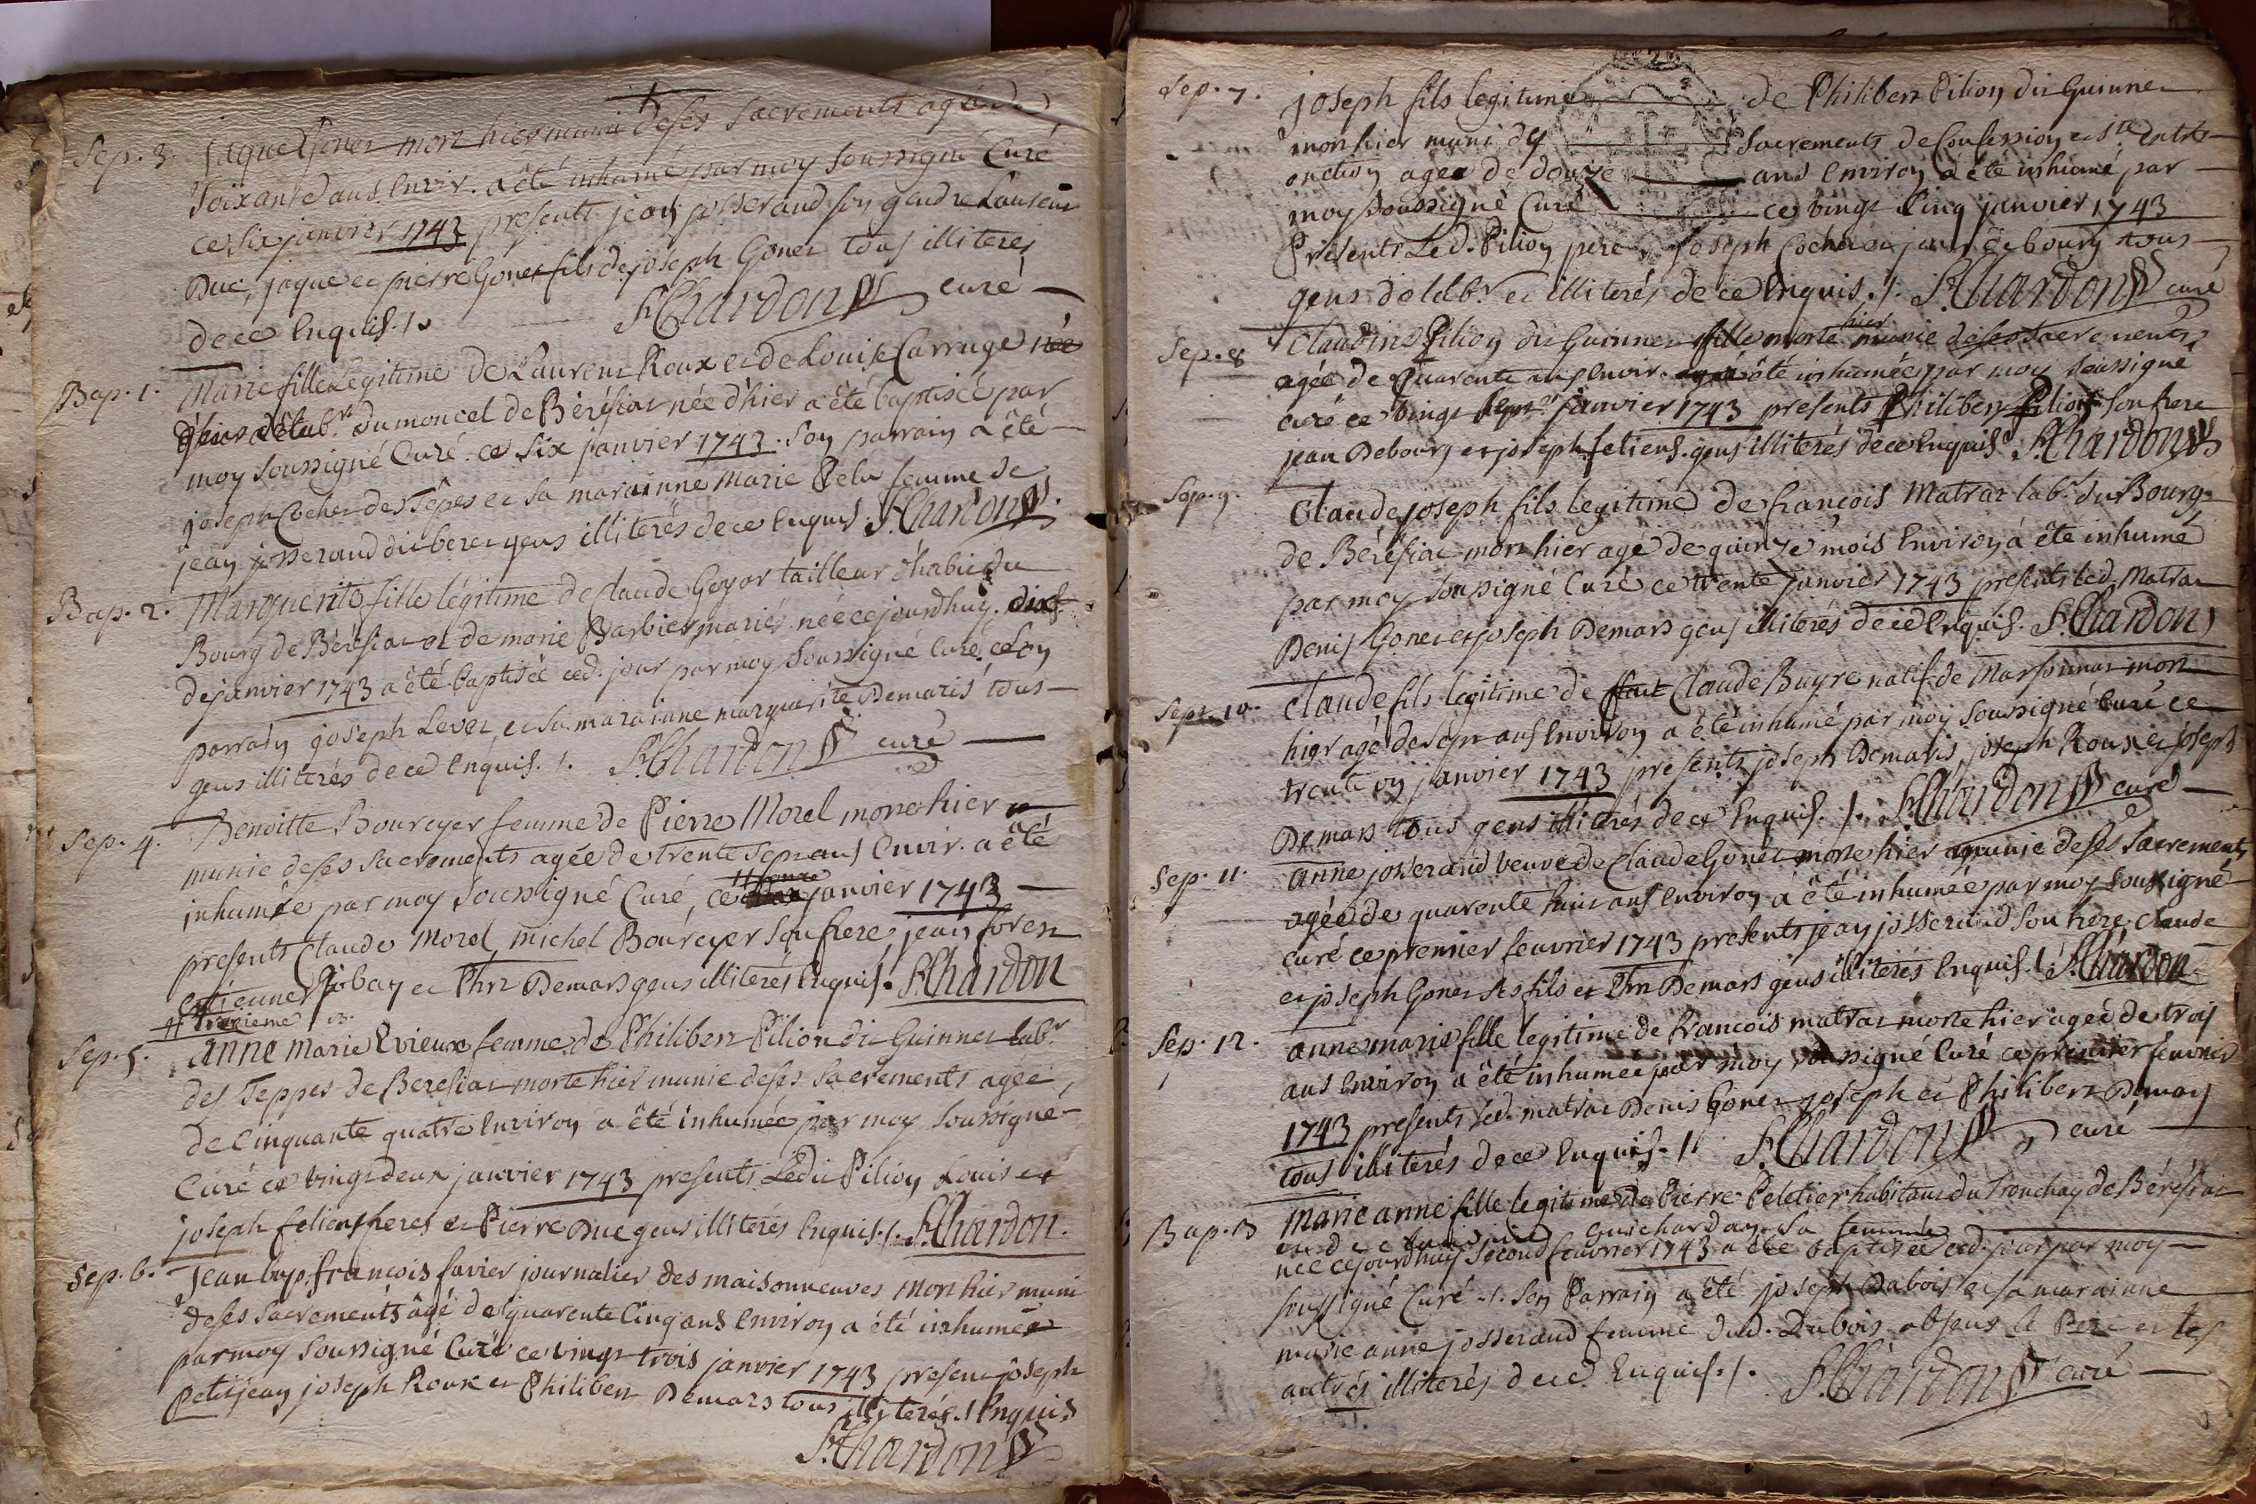 Sep. 3. Jaque Gonet mort hier muni de ses sacrements agé de
soixante ans envir. a été inhumé par moy soussigné Curé
ce six janvier 1743 presents jean josserand son gendre Laurent
Duc, jaque et pierre Gonet fils de joseph Gonet tous illiteres
de ce Enquis ./. St Chardon curé
Bap. 1. Marie fille Legitime de Laurent Roux et de Louise Carruge née
lab.r du moncel de Béréziat née d'hier a été baptisée par
moy soussigné Curé ce six janvier 1743. son parrain a été
joseph Cochet des Tepes et sa marainne Marie Pela femme de
jean josserand dit beret gens illiterés de ce Enquis St Chardon
Bap. 2. Marguerite fille légitime de Claude Goyot tailleur d'habit du
Bourg de Béréziat et de marie Barbier mariés née ce jourdhuy dix
de janvier 1743 a été baptisée ced. jour par moy soussigné Curé, son
parrain joseph Levet et sa marainne marguerite Demaris tous
gens illiterés de ce Enquis ./. St Chardon curé
Sep. 4. Benoitte Bourcyer femme de Pierre Morel morte hier
munie de ses sacrements agée de trente sept ans Envir. a été
inhumée par moy soussigné Curé, ce janvier 1743
presents Claude Morel, michel Bourcyer son frere, jean foret
etienne Pobay et Phrt Demars gens illiterés Enquis. St Chardon
treizieme 13.
Sep. 5. Anne Marie Evieux femme de Philibert Pilion dit Guinnet lab.r
des Teppes de Bereziat morte hier munie de ses sacrements agée
de Cinquante quatre Environ a été inhumée par moy soussigné
Curé ce vingt deux janvier 1743 presents Ledit Pilion Louis et
joseph feliens freres et Pierre Duc gens illiterés Enquis ./. St Chardon.
Sep. 6. Jean bap. françois favier journalier des maisonneuves mort hier muni
de ses sacrements âgé de quarente Cinq ans Environ a été inhumé
par moy soussigné Curé ce vingt trois janvier 1743 present joseph
Petitjean joseph Roux et Philibert Demars tous illiterés ./. Enquis
St Chardon
Sep. 7. Joseph fils legitime de Philibert Pilion dit Guinnet
mort hier muni des sacrements de Confession et ste Extr.
onction agée de douze ans Environ a été inhumé par
moy soussigné Curé ce vingt Cinq janvier 1743
Présents Led. Pilion pere joseph Cochet et jean de bourg tous
gens de lab.r et illiterés de ce Enquis ./. St Chardon curé
Sep. 8 Claudine Pilion dit Guinnet fille morte hier munie de ses sacrements
agée de Quarente ans Envir. a été inhumée par moy soussigné
curé ce vingt sept janvier 1743 presents Philibert Pilion son frere
jean Debourg et joseph feliens. gens illiterés de ce Enquis St Chardon
Sep. 9. Claude joseph fils legitime de françois Matrat lab.r du Bourg
de Béréziat mort hier agé de quinze mois Environ a été inhumé
par moy soussigné Curé ce trente janvier 1743 presents led. Matrat
Denis Gonet et joseph Demars gens illiterés de ce Enquis. St Chardon
Sep. 10. Claude fils legitime de feu Claude Buyre natif de Marsonnas mort
hier agé de sept ans Environ a été inhumé par moy soussigné Curé ce
trente un janvier 1743 presents joseph Demaris, joseph Roux et joseph
Demars tous gens illiterés de ce Enquis. /. St Chardon curé
Sep. 11. Anne josserand veuve de Claude Gonet morte hier munie de ses sacrements
agée de quarente huit ans Environ a été inhumée par moy soussigné
curé ce premier feuvrier 1743 presents jean josserand son frere, Claude
et joseph Gonet ses fils et Phrt Demars gens illiterés Enquis ./. St Chardon
Sep. 12. Anne marie fille legitime de francois matrat morte hier agée de trois
ans Environ a été inhumée par moy soussigné Curé ce premier feuvrier
1743 presents led. matrat Denis Gonet joseph et Philibert Demars
tous illiterés de ce Enquis. /. St Chardon curé
Bap. 3 Marie anne fille legitime de Pierre Peletier habitant du Tronchay de Béréziat
et de Guichardan sa femme
née ce jourdhuy second feuvrier 1743 a été baptisée ced. jour par moy
soussigné Curé ./. son Parrain a été joseph Dubois et sa marainne
marie anne josserand femme dud. Dubois absent le Pere et les
autres illiterés de ce Enquis ./. St Chardon curé